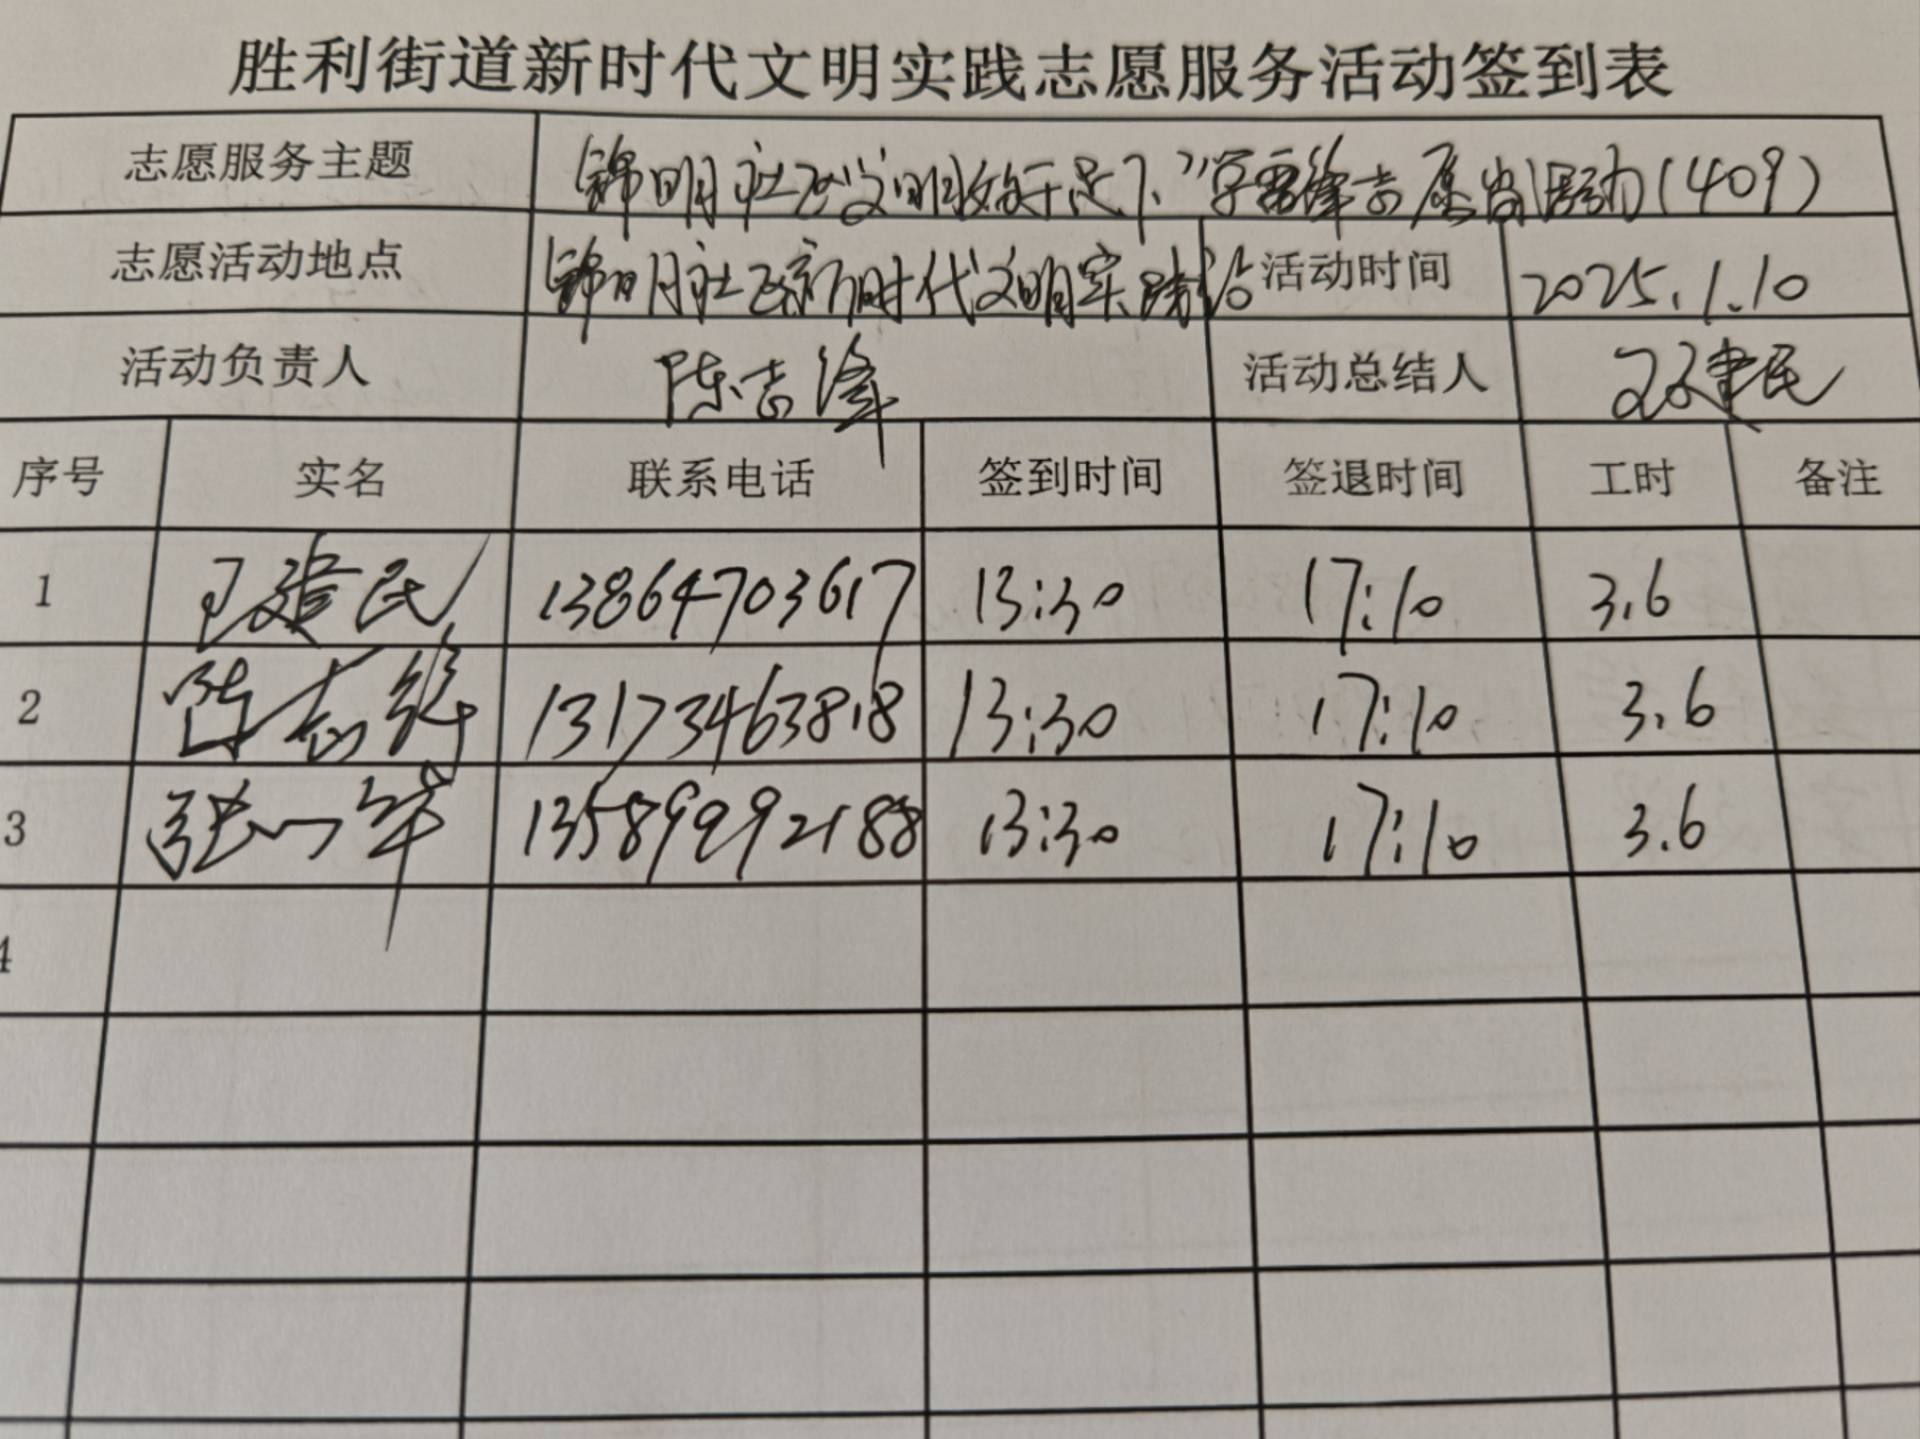 胜利街道新时代文明实践志愿服务活动签到表
志愿服务主题 锦明社区"文明始于足下"学雷锋志愿岗活动(409)
志愿活动地点 锦明社区新时代文明实践站 活动时间 2025.1.10
活动负责人 陈志锋 活动总结人 建民
序号 实名 联系电话 签到时间 签退时间 工时 备注
1 王建民 13864703617 13:30 17:10 3.6
2 陈志锋 13173463818 13:30 17:10 3.6
3 张一华 13589992188 13:30 17:10 3.6
4